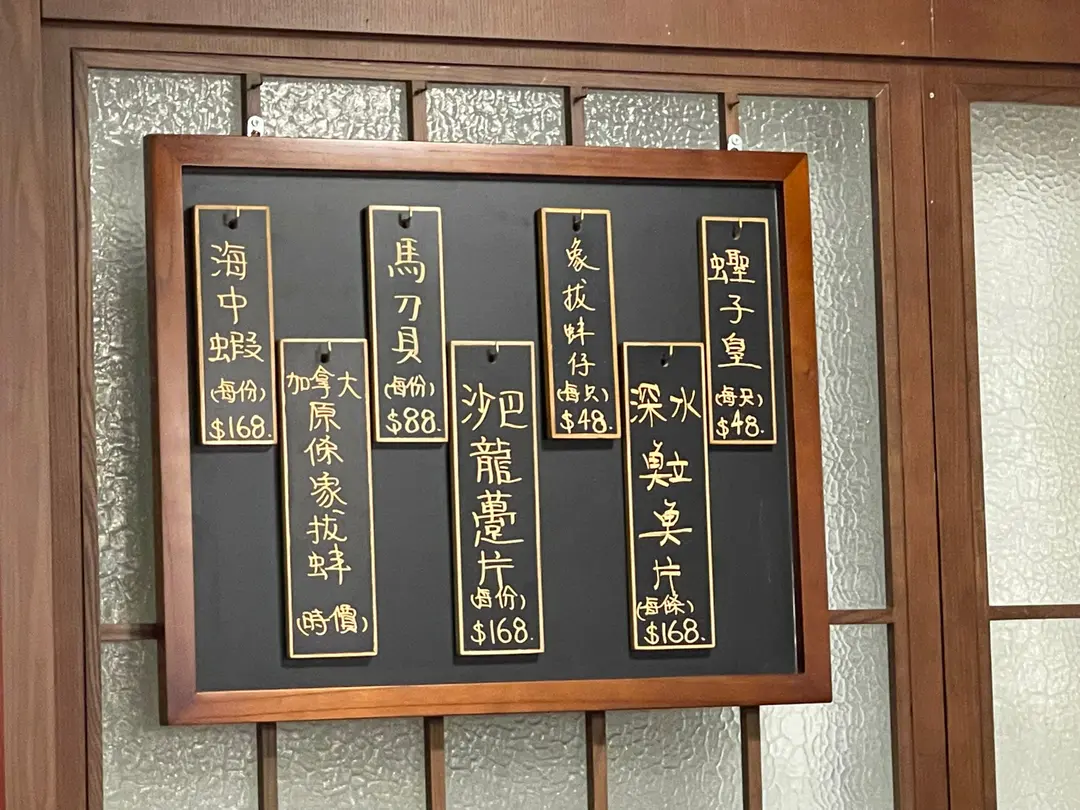 海中蝦
(每份)
$168.
加拿大
原條象拔蚌
(時價)
馬刀貝
(每份)
$88.
沙巴
龍躉片
(每份)
$168.
象拔蚌仔
(每只)
$48.
深水
𩶘魚片
(每條)
$168.
蟶子皇
(每只)
$48.